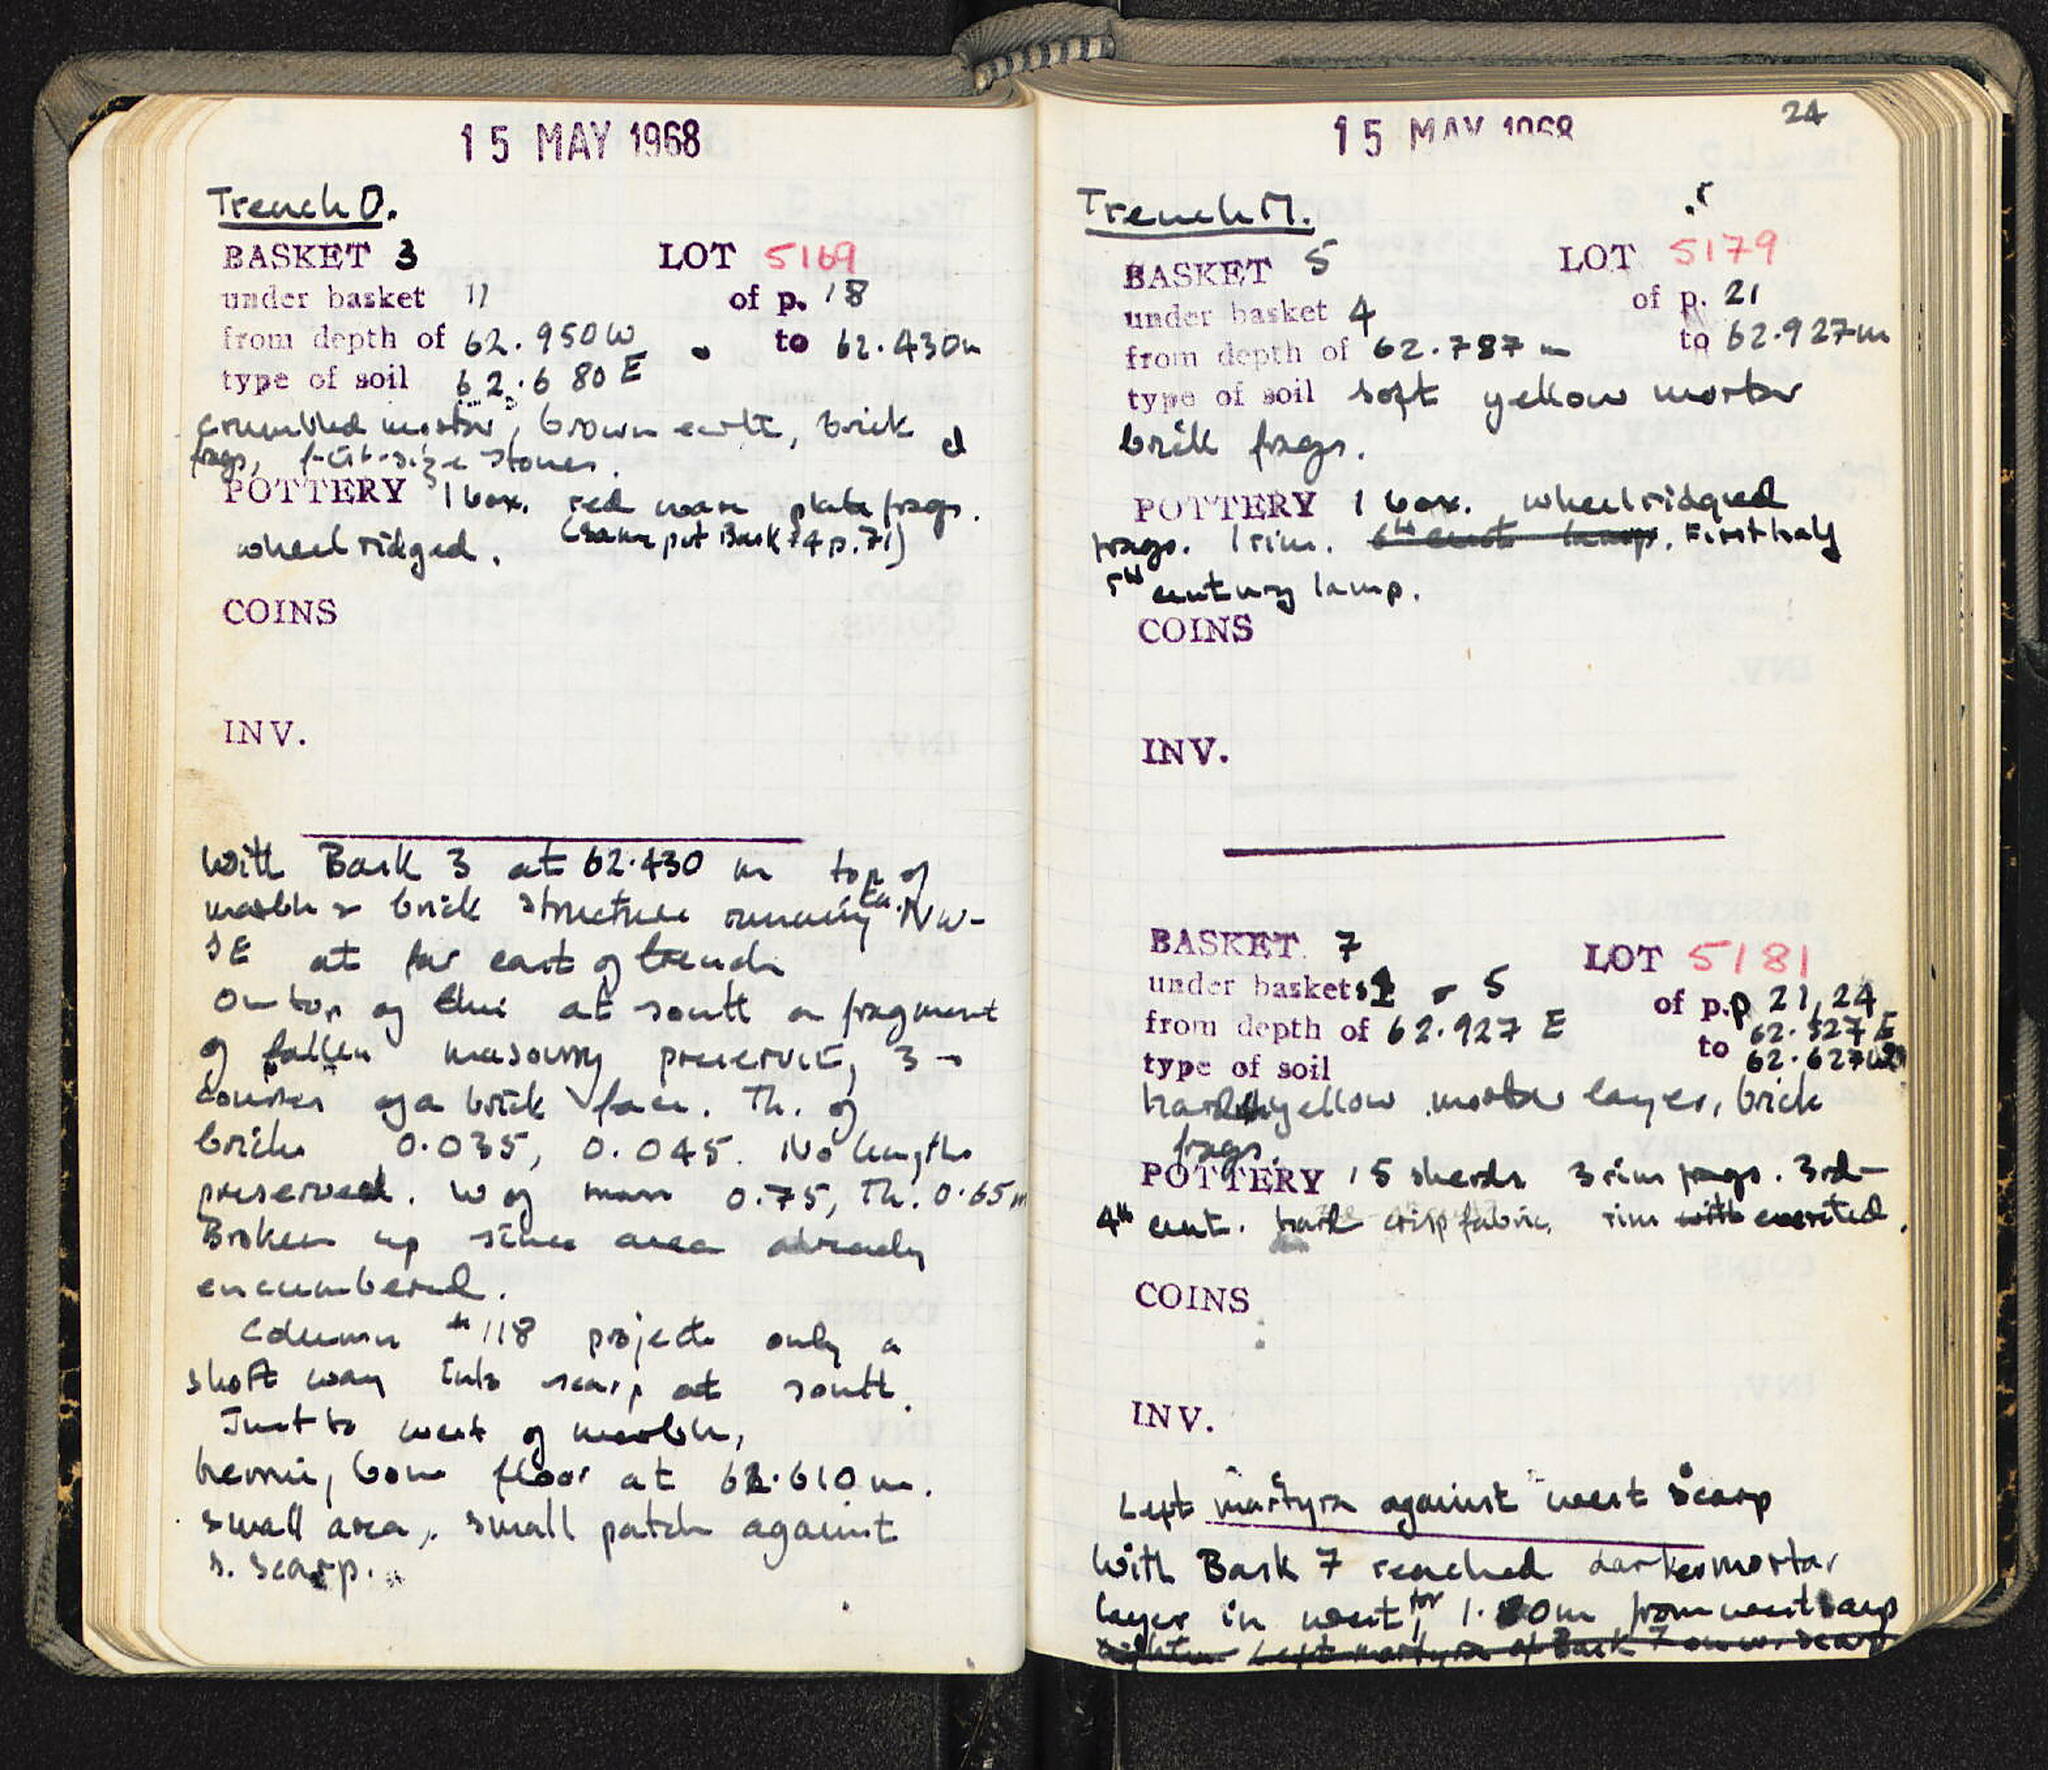 15 MAY 1968
Trench O.
BASKET 3 LOT 5169
under basket 11 of p. 18
from depth of 62.950 W to 62.430m
type of soil 62.680 E
crumbled mortar, brown earth, brick
frags, fist-size stones.
POTTERY 1 box. red ware plate frags.
wheel ridged. (same pot Bask 74 p. 71)
COINS
INV.
With Bask 3 at 62.430 m top of
marble & brick structure running NW-
SE at far east of trench
On top of this at south a fragment
of fallen masonry preserving 3
courses of a brick face. Th. of
bricks 0.035, 0.045. No lengths
preserved. W of mass 0.75, Th. 0.65m
Broken up since area already
encumbered.
Column # 118 projects only a
short way into scarp at south.
Just to west of marble,
floor at 62.610 m.
small area, small patch against
s. scarp.
15 MAY 1968
24
Trench M.
BASKET 5 LOT 5179
under basket 4 of p. 21
from depth of 62.787 m to 62.927m
type of soil soft yellow mortar
brick frags.
POTTERY 1 box. wheel ridged
frags. 1 rim. 6th cent lamp. First half
5th century lamp.
COINS
INV.
BASKET 7 LOT 5181
under baskets 1 - 5 of p.p 21, 24
from depth of 62.927 E to 62.527 E
type of soil 62.627 W
hard yellow mortar layer, brick
frags.
POTTERY 15 sherds 3 rim frags. 3rd-
4th cent. hard crisp fabric, rim with everted.
COINS
INV.
Left martyra against west scarp
With Bask 7 reached darker mortar
layer in west, for 1.80m from west scarp
Left martyra of Bask 7 on w. scarp